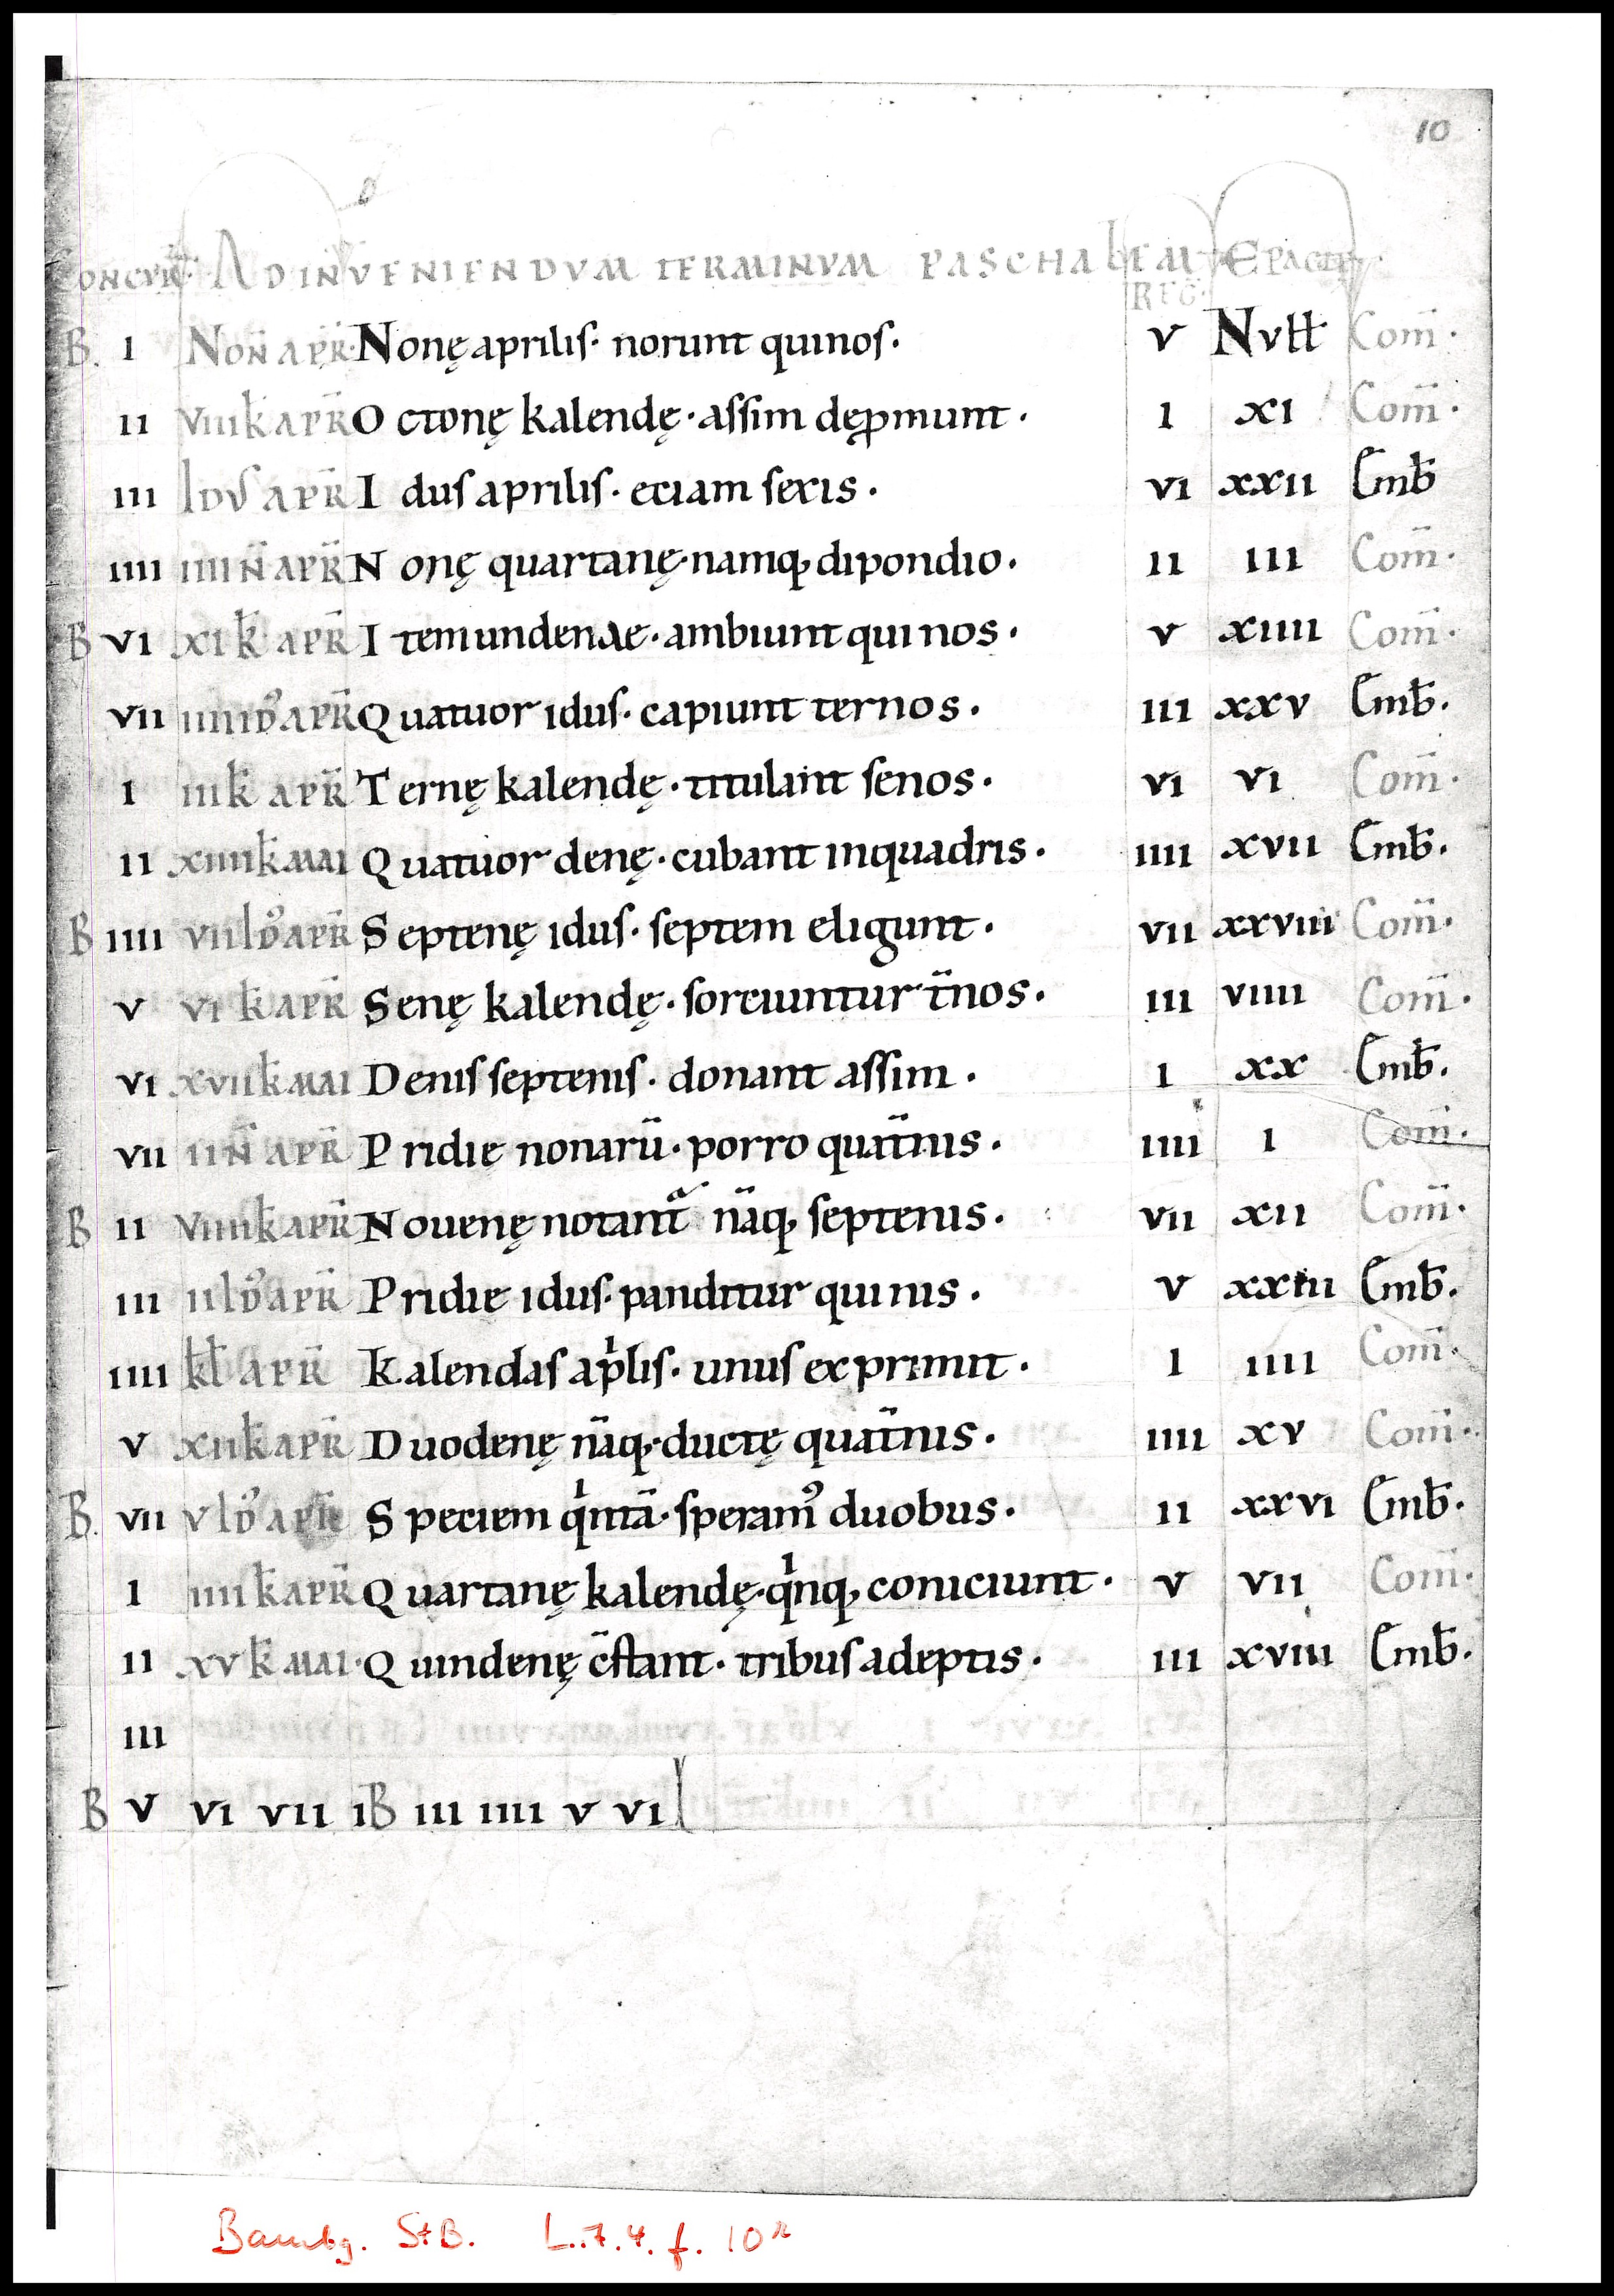 10
CONCVR̄. AD INVENIENDVM TERMINVM PASCHALEM EPACTE.
REG̅.
B. I NON̄ APR̄. Nonę aprilis· norunt quinos. V Nvll̅ Com̄.
II VIIIK̅ APR̄ Octonę kalendę· assim deꝓmunt. I XI Com̄.
III IDVS APR̄ Idus aprilis· eciam sexis. VI XXII Emb̅
IIII IIII N̄ APR̄ Nonę quartanę· namq; dipondio. II III Com̄.
B VI XI K̅ APR̄ Item undenae· ambiunt quinos. V XIIII Com̄.
VII IIII ID᷒ APR̄ Quatuor idus· capiunt ternos. III XXV Emb̅.
I III K̅ APR̄ Ternę kalendę· titulant senos. VI VI Com̄.
II XIIII K̅ MAI Quatuor denę· cubant inquadris. IIII XVII Emb̅.
B IIII VII ID᷒ APR̄ Septenę idus· septem eligunt. VII XXVIII Com̄.
V VI K̅ APR̄ Senę kalendę· sorciuntur t̄nos. III VIIII Com̄.
VI XVII K̅ MAI Denis septenis· donant assim. I XX Emb̅.
VII II N̄ APR̄ Pridie nonarū· porro quat̄nis. IIII I Com̄.
B II VIIII K̅ APR̄ Nouenę notant᷑ nāq; septenis. VII XII Com̄.
III II ID᷒ APR̄ Pridie idus· panditur quinis. V XXIII Emb̅.
IIII K̅L̅ APR̄ Kalendas ap̍lis· unus exprimit. I IIII Com̄.
V XII K̅ APR̄ Duodenę nāq;· ductę quat̄nis. IIII XV Com̄.
B. VII V ID᷒ APR̄ Speciem q̍ntā· speram᷒ duobus. II XXVI Emb̅.
I IIII K̅ APR̄ Quartanę kalendę· q̍nq; coniciunt. V VII Com̄.
II XV K̅ MAI· Quindenę c̄stant· tribus adeptis. III XVIII Emb̅.
III
B V VI VII I B III IIII V VI
Bambg. StB. L..7.4. f. 10r